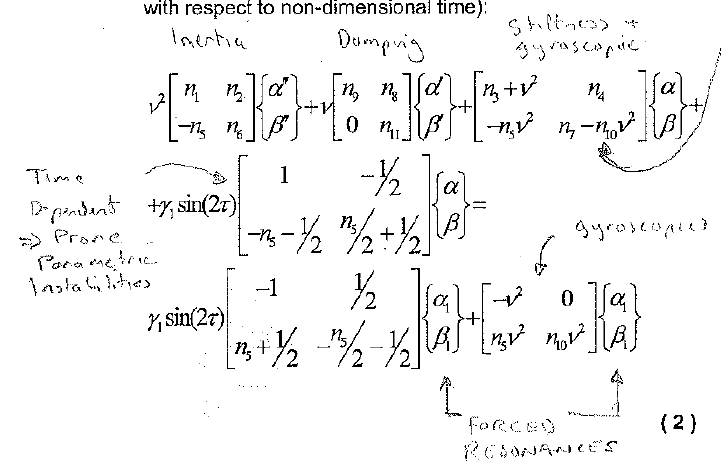 with respect to non-dimensional time):
Inertia Damping Stiffness + gyroscopic
ν² [n₁ n₂; −n₅ n₆] {α″; β″} + ν [n₉ n₈; 0 n₁₁] {α′; β′} + [n₃+ν² n₄; −n₅ν² n₇−n₁₀ν²] {α; β} +
Time Dependent ⇒ Prone Parametric Instabilities
+γ₁ sin(2τ) [1 −1/2; −n₅−1/2 n₅/2+1/2] {α; β} =
gyroscopics
γ₁ sin(2τ) [−1 1/2; n₅+1/2 −n₅/2−1/2] {α₁; β₁} + [−ν² 0; n₅ν² n₁₀ν²] {α₁; β₁}
(2)
FORCED
RESONANCES